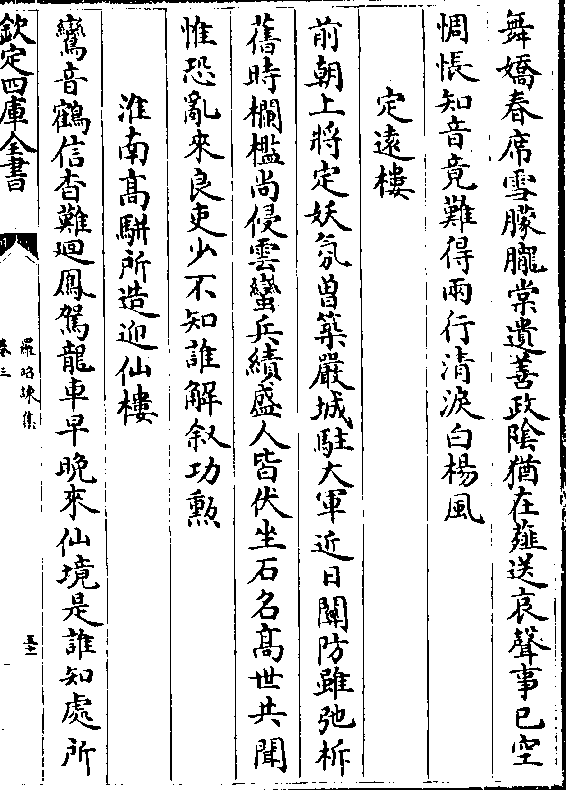 舞嬌春席雪朦朧棠遺善政陰猶在薤送哀聲事已空
惆悵知音竟難得兩行清淚白楊風
定遠樓
前朝上將定妖氛曽築嚴城駐大軍近日關防雖弛柝
舊時欄檻尚侵雲蠻兵績盛人皆伏坐石名髙世共聞
惟恐亂來良吏少不知誰解叙功勲
淮南髙駢所造迎仙樓
鸞音鶴信杳難迴鳳駕龍車早晚來仙境是誰知處所
欽定四庫全書
羅昭諫集
卷三